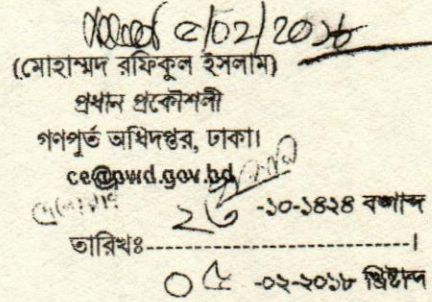 ৫/02/2018
(মোহাম্মদ রফিকুল ইসলাম)
প্রধান প্রকৌশলী
গণপূর্ত অধিদপ্তর, ঢাকা।
ce@pwd.gov.bd
২৩ -১০-১৪২৪ বঙ্গাব্দ
তারিখঃ---------------------------।
০৫ -০২-২০১৮ খ্রিষ্টাব্দ